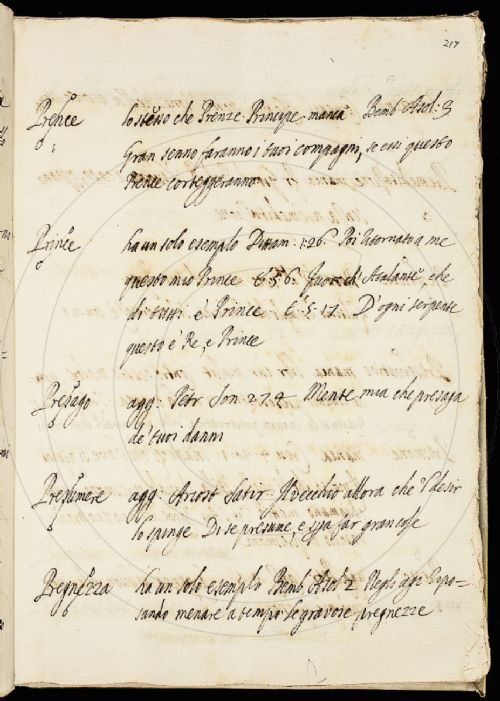 217
Prence lo stesso che Prenze Principe manca Bemb Asol: 3
Gran senno faranno i tuoi compagni, se essi questo
Prence corteggeranno
Prince ha un solo esempio Dittam: 1.26. Poi ritornato a me
questo mio Prince E 5.6. fuor d'Atalante, che
di tutti è Prince E 5.17. D'ogni serpente
questo è Re, e Prince
Presago agg: Petr Son 274 Mente mia che presaga
de' tuoi danni
Presumere agg: Ariost Satir Il vecchio allora che 'l desir
lo spinge Di se presume, e spa far gran cose
Pregnezza ha un solo esempio Bemb Asol 2 Negli agi ripo-
sando menare a tempo le gravose pregnezze